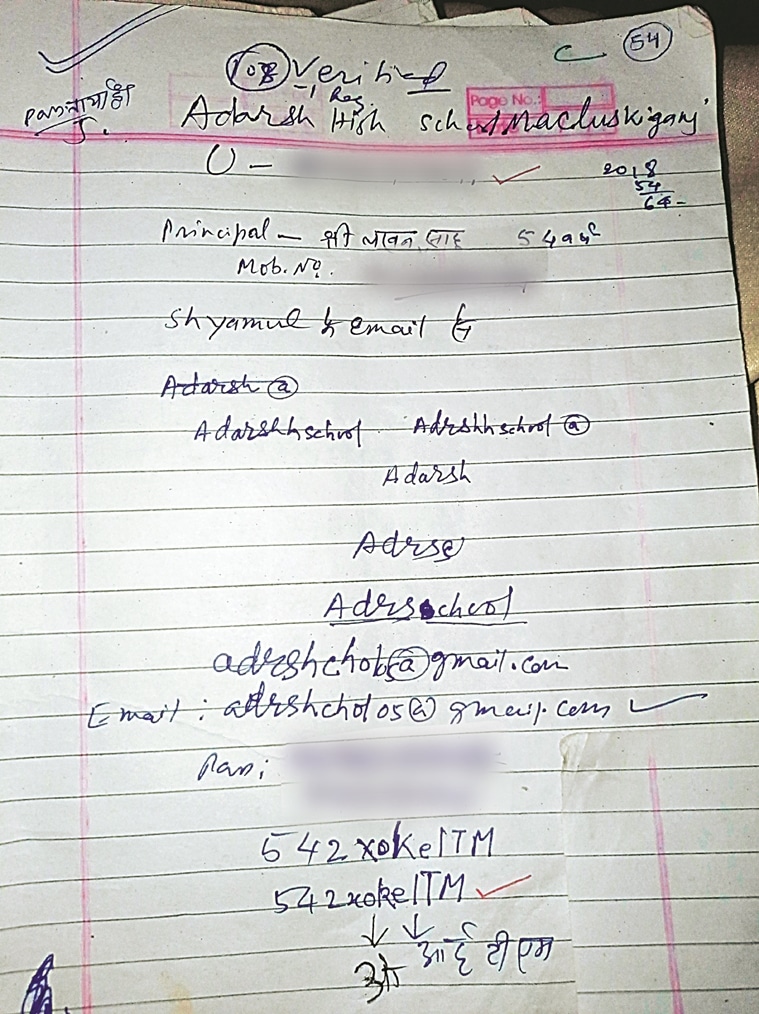 54
108 Verified
Reg
Page No.:
Adarsh High School Macluskiganj
Pan नामांही
U -
2018
54
64-
Principal - श्री साहू 54
Mob. No.
Shyamul Email
Adarsh @
Adarshhschool Adrshhschool @
Adarsh
Adrsc
Adrsschool
adrshchol @gmail.com
Email : adrshchol05@gmail.com
Pan:
542xokeITM
542xokeITM
ओ आई टी एम